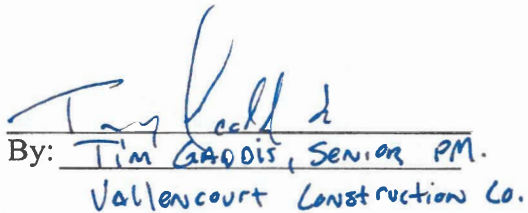 By: Tim GADDIS, SENIOR PM.
Vallencourt Construction Co.